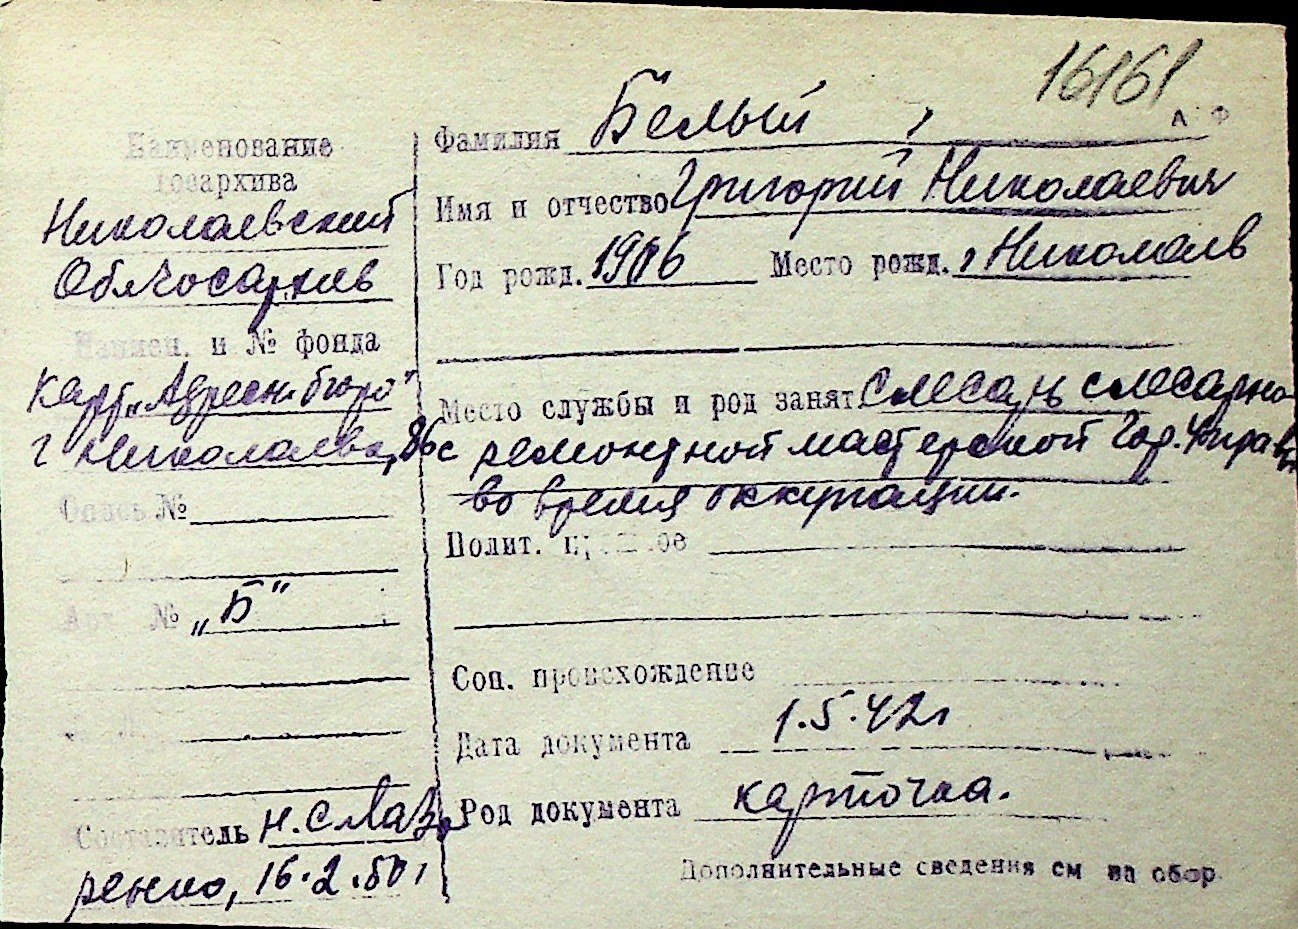 16161
А Ф
Наименование
госархива
Николаевский
Облгосархив
Наимен. и № фонда
карт. „Адресн. бюро"
г Николаева,
Опись №
Арх. № „Б"
Составитель Н. С Лаз
ренко, 16.2.50г
Фамилия Белый
Имя и отчество Григорий Николаевич
Год рожд. 1906 Место рожд. г Николаев
Место службы и род занят. Слесарь слесарно
ремонтной мастерской Гор. Управы
во время оккупации.
Полит. прошлое
Соц. происхождение
Дата документа 1.5.42г
Род документа карточка.
Дополнительные сведения см на обор